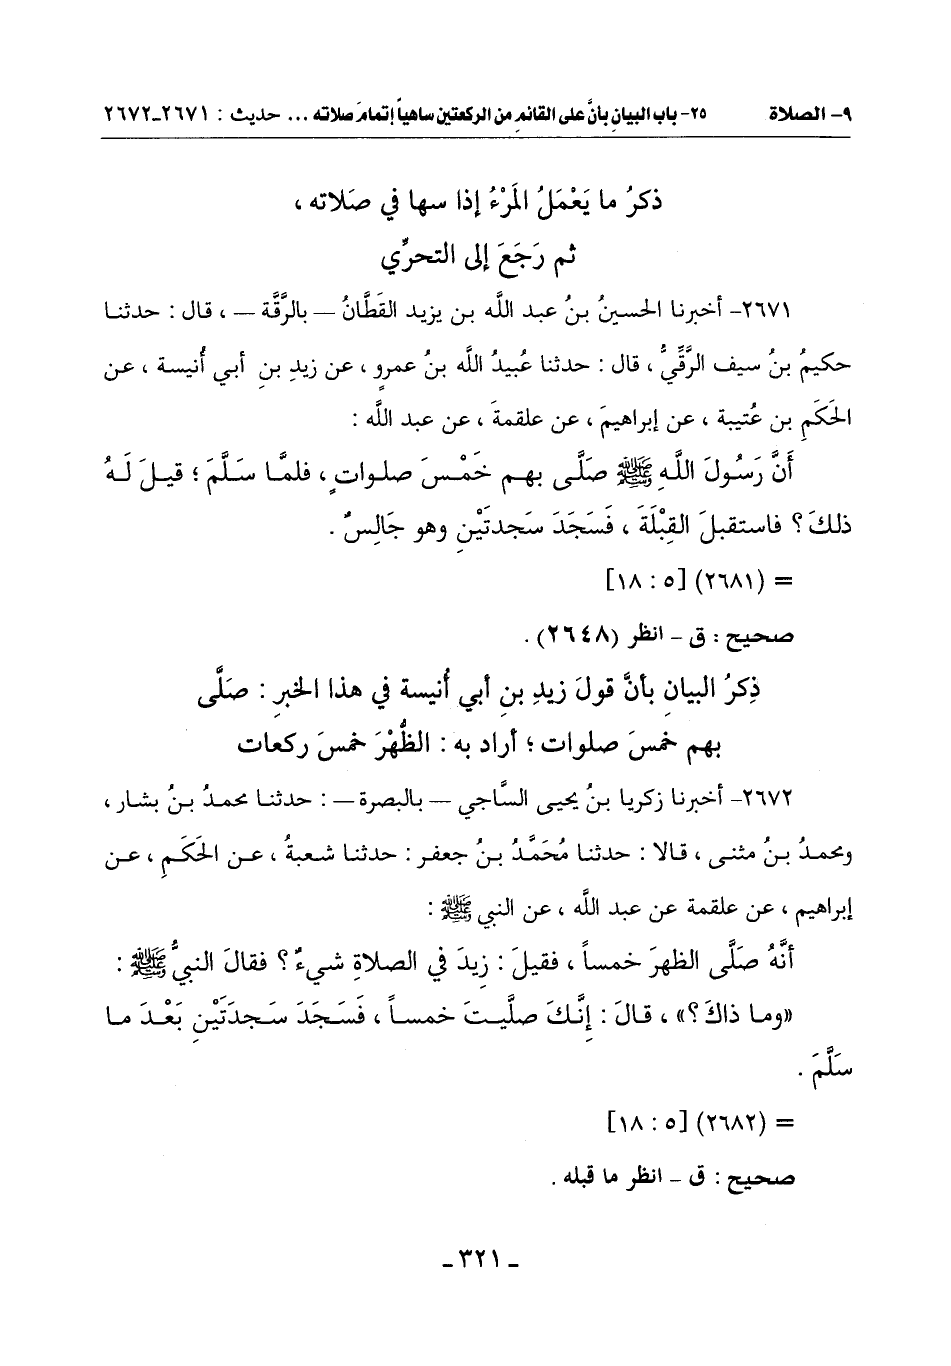 ٩- الصلاة ٢٥- باب البيان بأنَّ على القائم من الركعتين ساهياً إتمامَ صلاته ... حديث : ٢٦٧١-٢٦٧٢
ذكرُ ما يَعْمَلُ المَرْءُ إذا سها في صَلاته ،
ثم رَجَعَ إلى التحرِّي
٢٦٧١- أخبرنا الحسينُ بنُ عبد اللَّه بن يزيد القَطَّانُ – بالرَّقَّة – ، قال : حدثنا
حكيمُ بنُ سيف الرَّقِّيُّ ، قال : حدثنا عُبيدُ اللَّه بنُ عمرو ، عن زيدِ بنِ أبي أُنيسة ، عن
الحَكَمِ بن عُتيبة ، عن إبراهيمَ ، عن علقمةَ ، عن عبد اللَّه :
أَنَّ رَسُولَ اللَّهِ ﷺ صَلَّى بهم خَمْسَ صلوات ، فلمَّا سَلَّمَ ؛ قيلَ لَهُ
ذلكَ ؟ فاستقبلَ القِبْلَةَ ، فَسَجَدَ سَجدتَيْنِ وهو جَالِسٌ .
= (٢٦٨١) [٥ : ١٨]
صحيح : ق - انظر (٢٦٤٨) .
ذِكرُ البيانِ بأنَّ قولَ زيدِ بنِ أبي أُنيسة في هذا الخبرِ : صَلَّى
بهم خمسَ صلوات ؛ أراد به : الظُّهْرَ خمسَ ركعات
٢٦٧٢- أخبرنا زكريا بنُ يحيى السَّاجي – بالبصرة – : حدثنا محمدُ بنُ بشار ،
ومحمدُ بنُ مثنى ، قالا : حدثنا مُحَمَّدُ بنُ جعفر : حدثنا شعبةُ ، عن الحَكَمِ ، عن
إبراهيم ، عن علقمة عن عبد اللَّه ، عن النبي ﷺ :
أنَّهُ صَلَّى الظهرَ خمساً ، فقيلَ : زِيدَ في الصلاةِ شيءٌ ؟ فقالَ النبيُّ ﷺ :
«وما ذاكَ ؟» ، قالَ : إنَّكَ صلَّيتَ خمساً ، فَسَجَدَ سَجدَتَيْنِ بَعْدَ ما
سَلَّمَ .
= (٢٦٨٢) [٥ : ١٨]
صحيح : ق - انظر ما قبله .
- ٣٢١ -